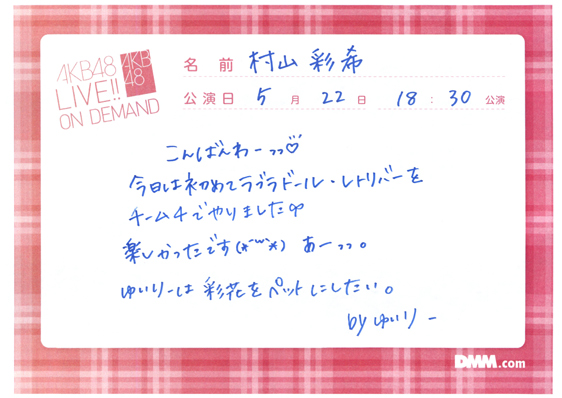 AKB48
LIVE!!
ON DEMAND
AKB
48
名前 村山彩希
公演日 5月22日 18:30公演
こんばんわーっっ♡
今日は初めてラブラドール・レトリバーを
チーム4でやりました
楽しかったです(*´꒳`*) あーっっ。
ゆいりーは彩花をペットにしたい。
by ゆいりー
DMM.com